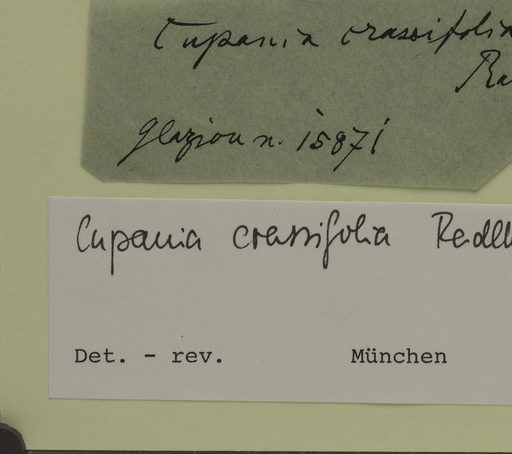 Cupania crassifolia
Ra
Glaziou n. 15871
Cupania crassifolia Radlk
Det. - rev. München